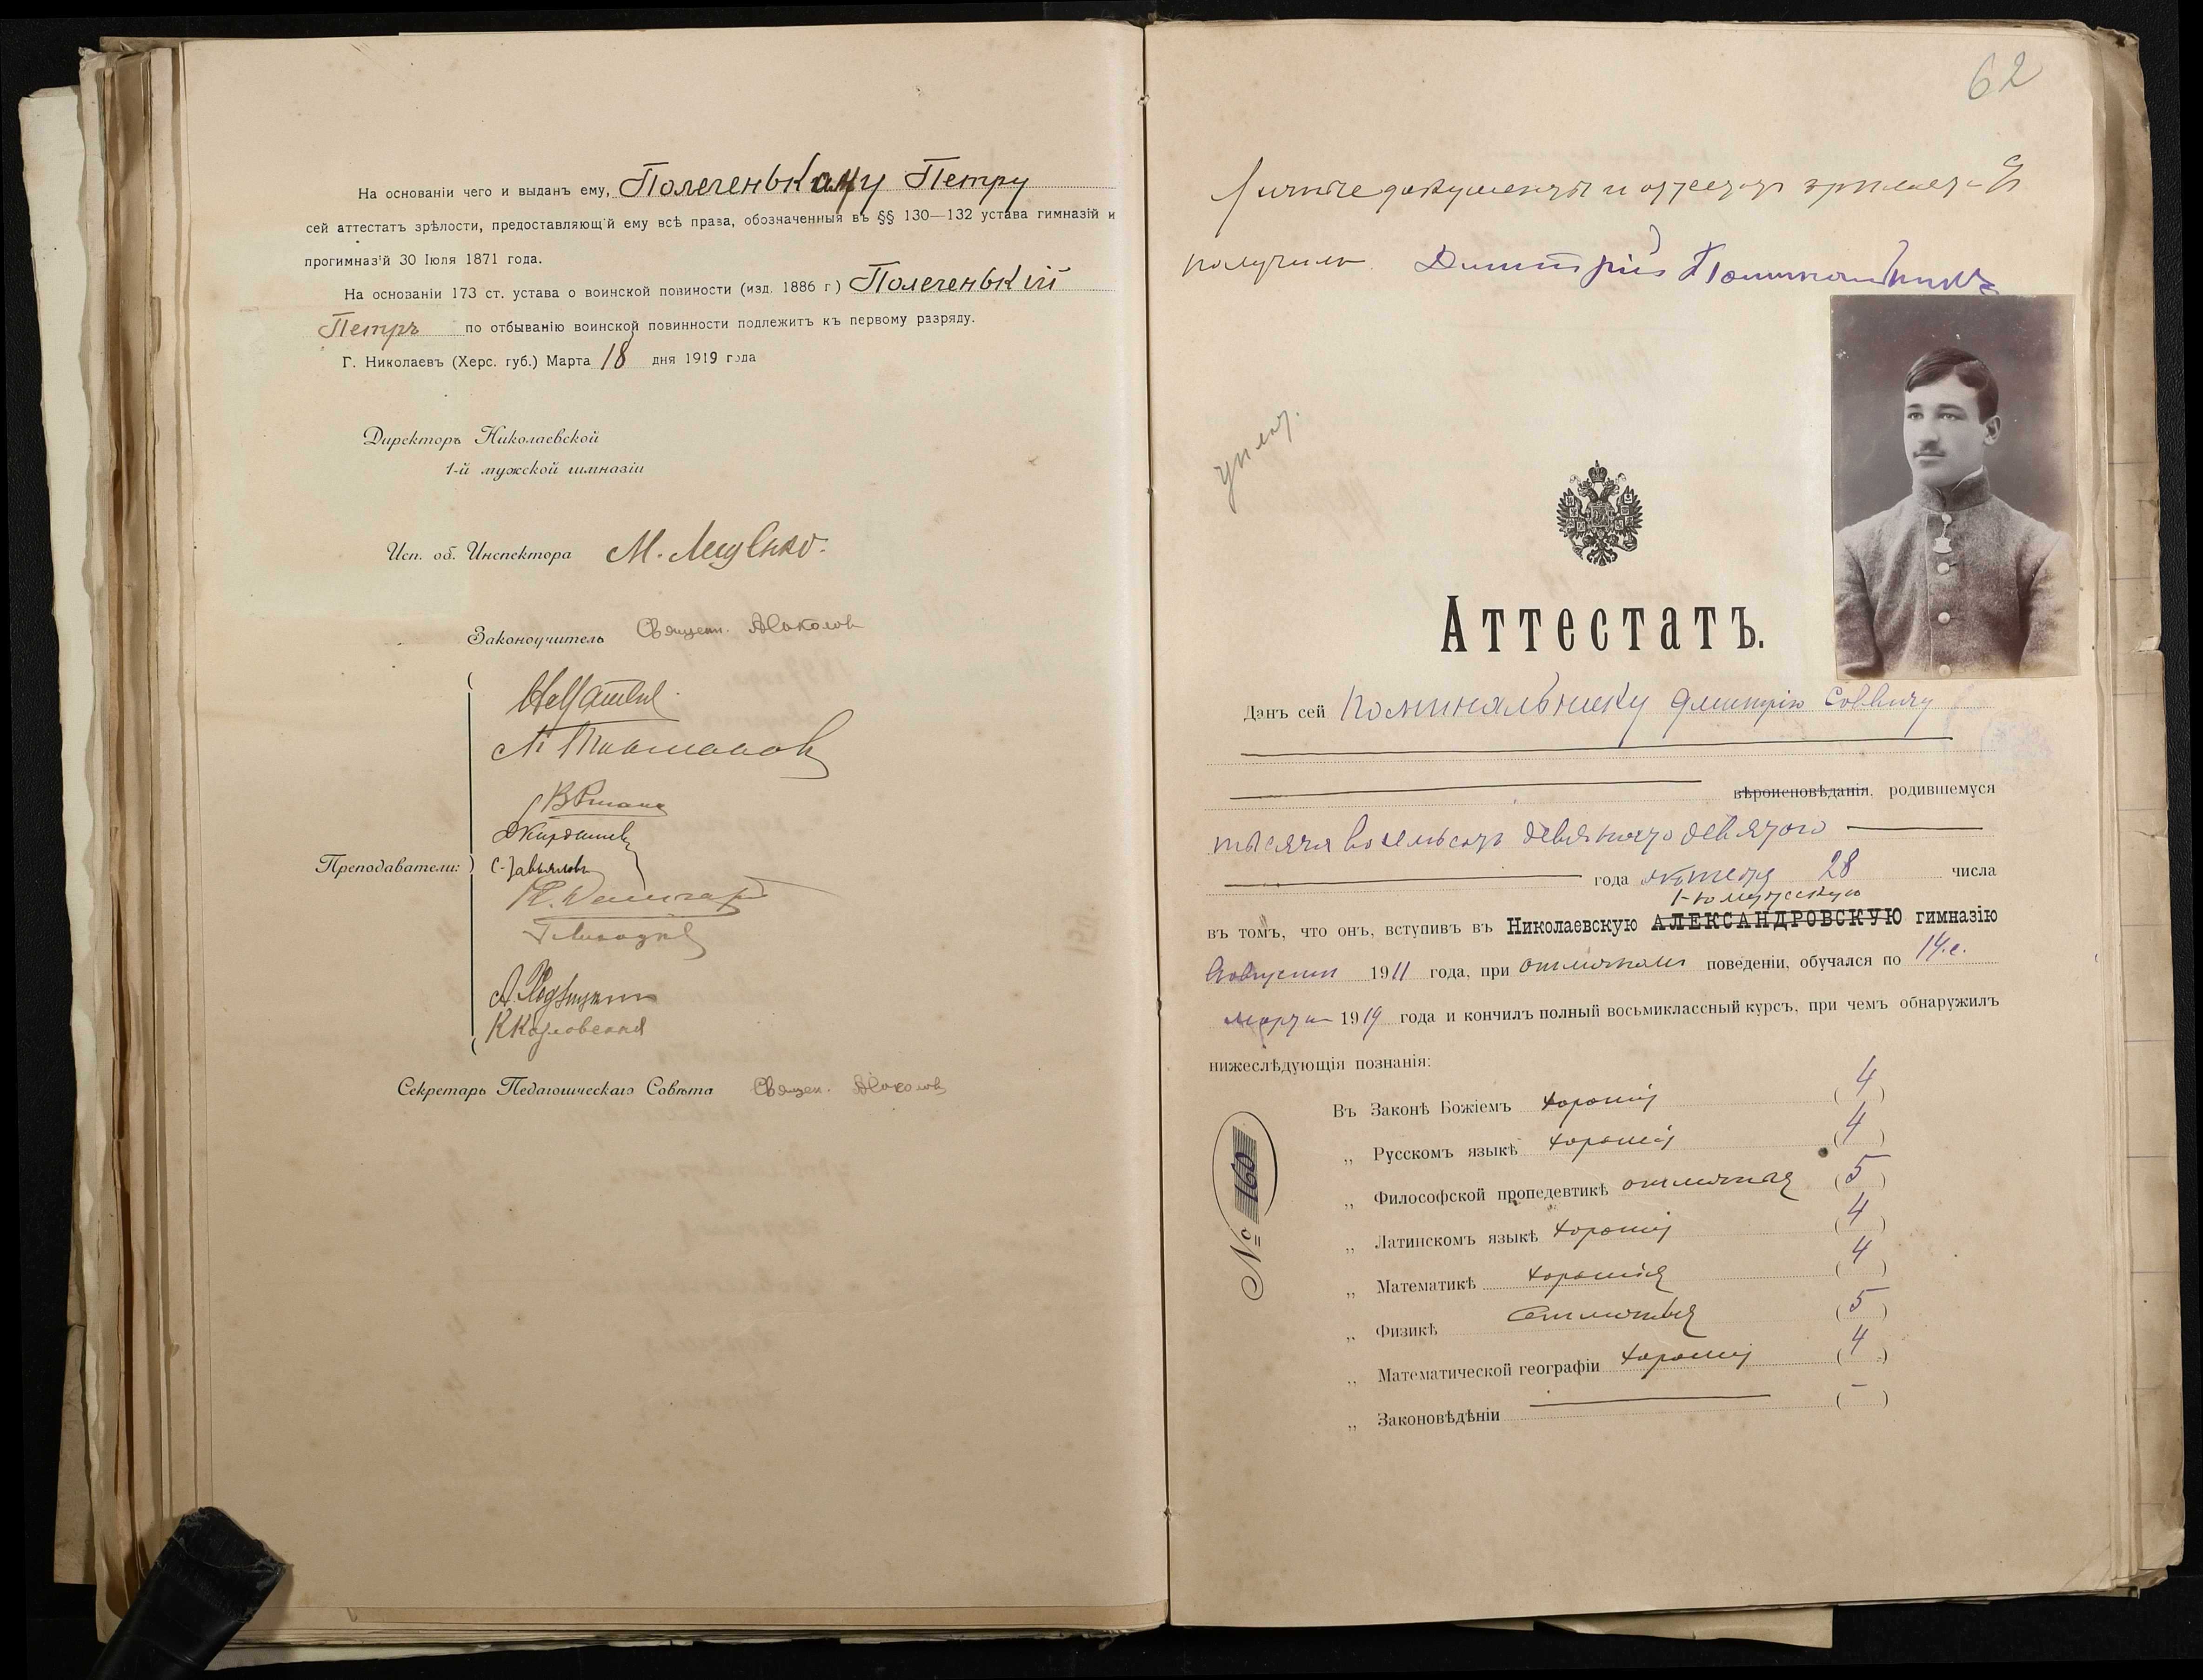 На основаніи чего и выданъ ему, Полегенькому Петру
сей аттестатъ зрѣлости, предоставляющій ему всѣ права, обозначенныя въ §§ 130—132 устава гимназій и
прогимназій 30 Іюля 1871 года.
На основаніи 173 ст. устава о воинской повиности (изд. 1886 г) Полегенькій
Петръ по отбыванію воинской повинности подлежитъ къ первому разряду.
Г. Николаевъ (Херс. губ.) Марта 18 дня 1919 года
Директоръ Николаевской
1-й мужской гимназіи
Исп. об. Инспектора М.
Законоучитель Священ.
Преподаватели:
С. Завьяловъ
Секретарь Педагогическаго Совѣта Священ.
62
документы и аттестатъ зрѣлости
получилъ Димитрій Поминальникъ
Аттестатъ.
Данъ сей Поминальнику Дмитрію Саввичу
вѣроисповѣданія, родившемуся
тысяча восемьсотъ девяносто девятого
года октября 28 числа
1-ю мужскую
въ томъ, что онъ, вступивъ въ Николаевскую АЛЕКСАНДРОВСКУЮ гимназію
Августа 1911 года, при отличномъ поведеніи, обучался по 14.е.
марта 1919 года и кончилъ полный восьмиклассный курсъ, при чемъ обнаружилъ
нижеслѣдующія познанія:
Въ Законѣ Божіемъ хорошія (4)
„ Русскомъ языкѣ хорошія (4)
„ Философской пропедевтикѣ отличныя (5)
„ Латинскомъ языкѣ хорошія (4)
„ Математикѣ хорошія (4)
„ Физикѣ отличныя (5)
„ Математической географіи хорошія (4)
„ Законовѣдѣніи (–)
№ 160